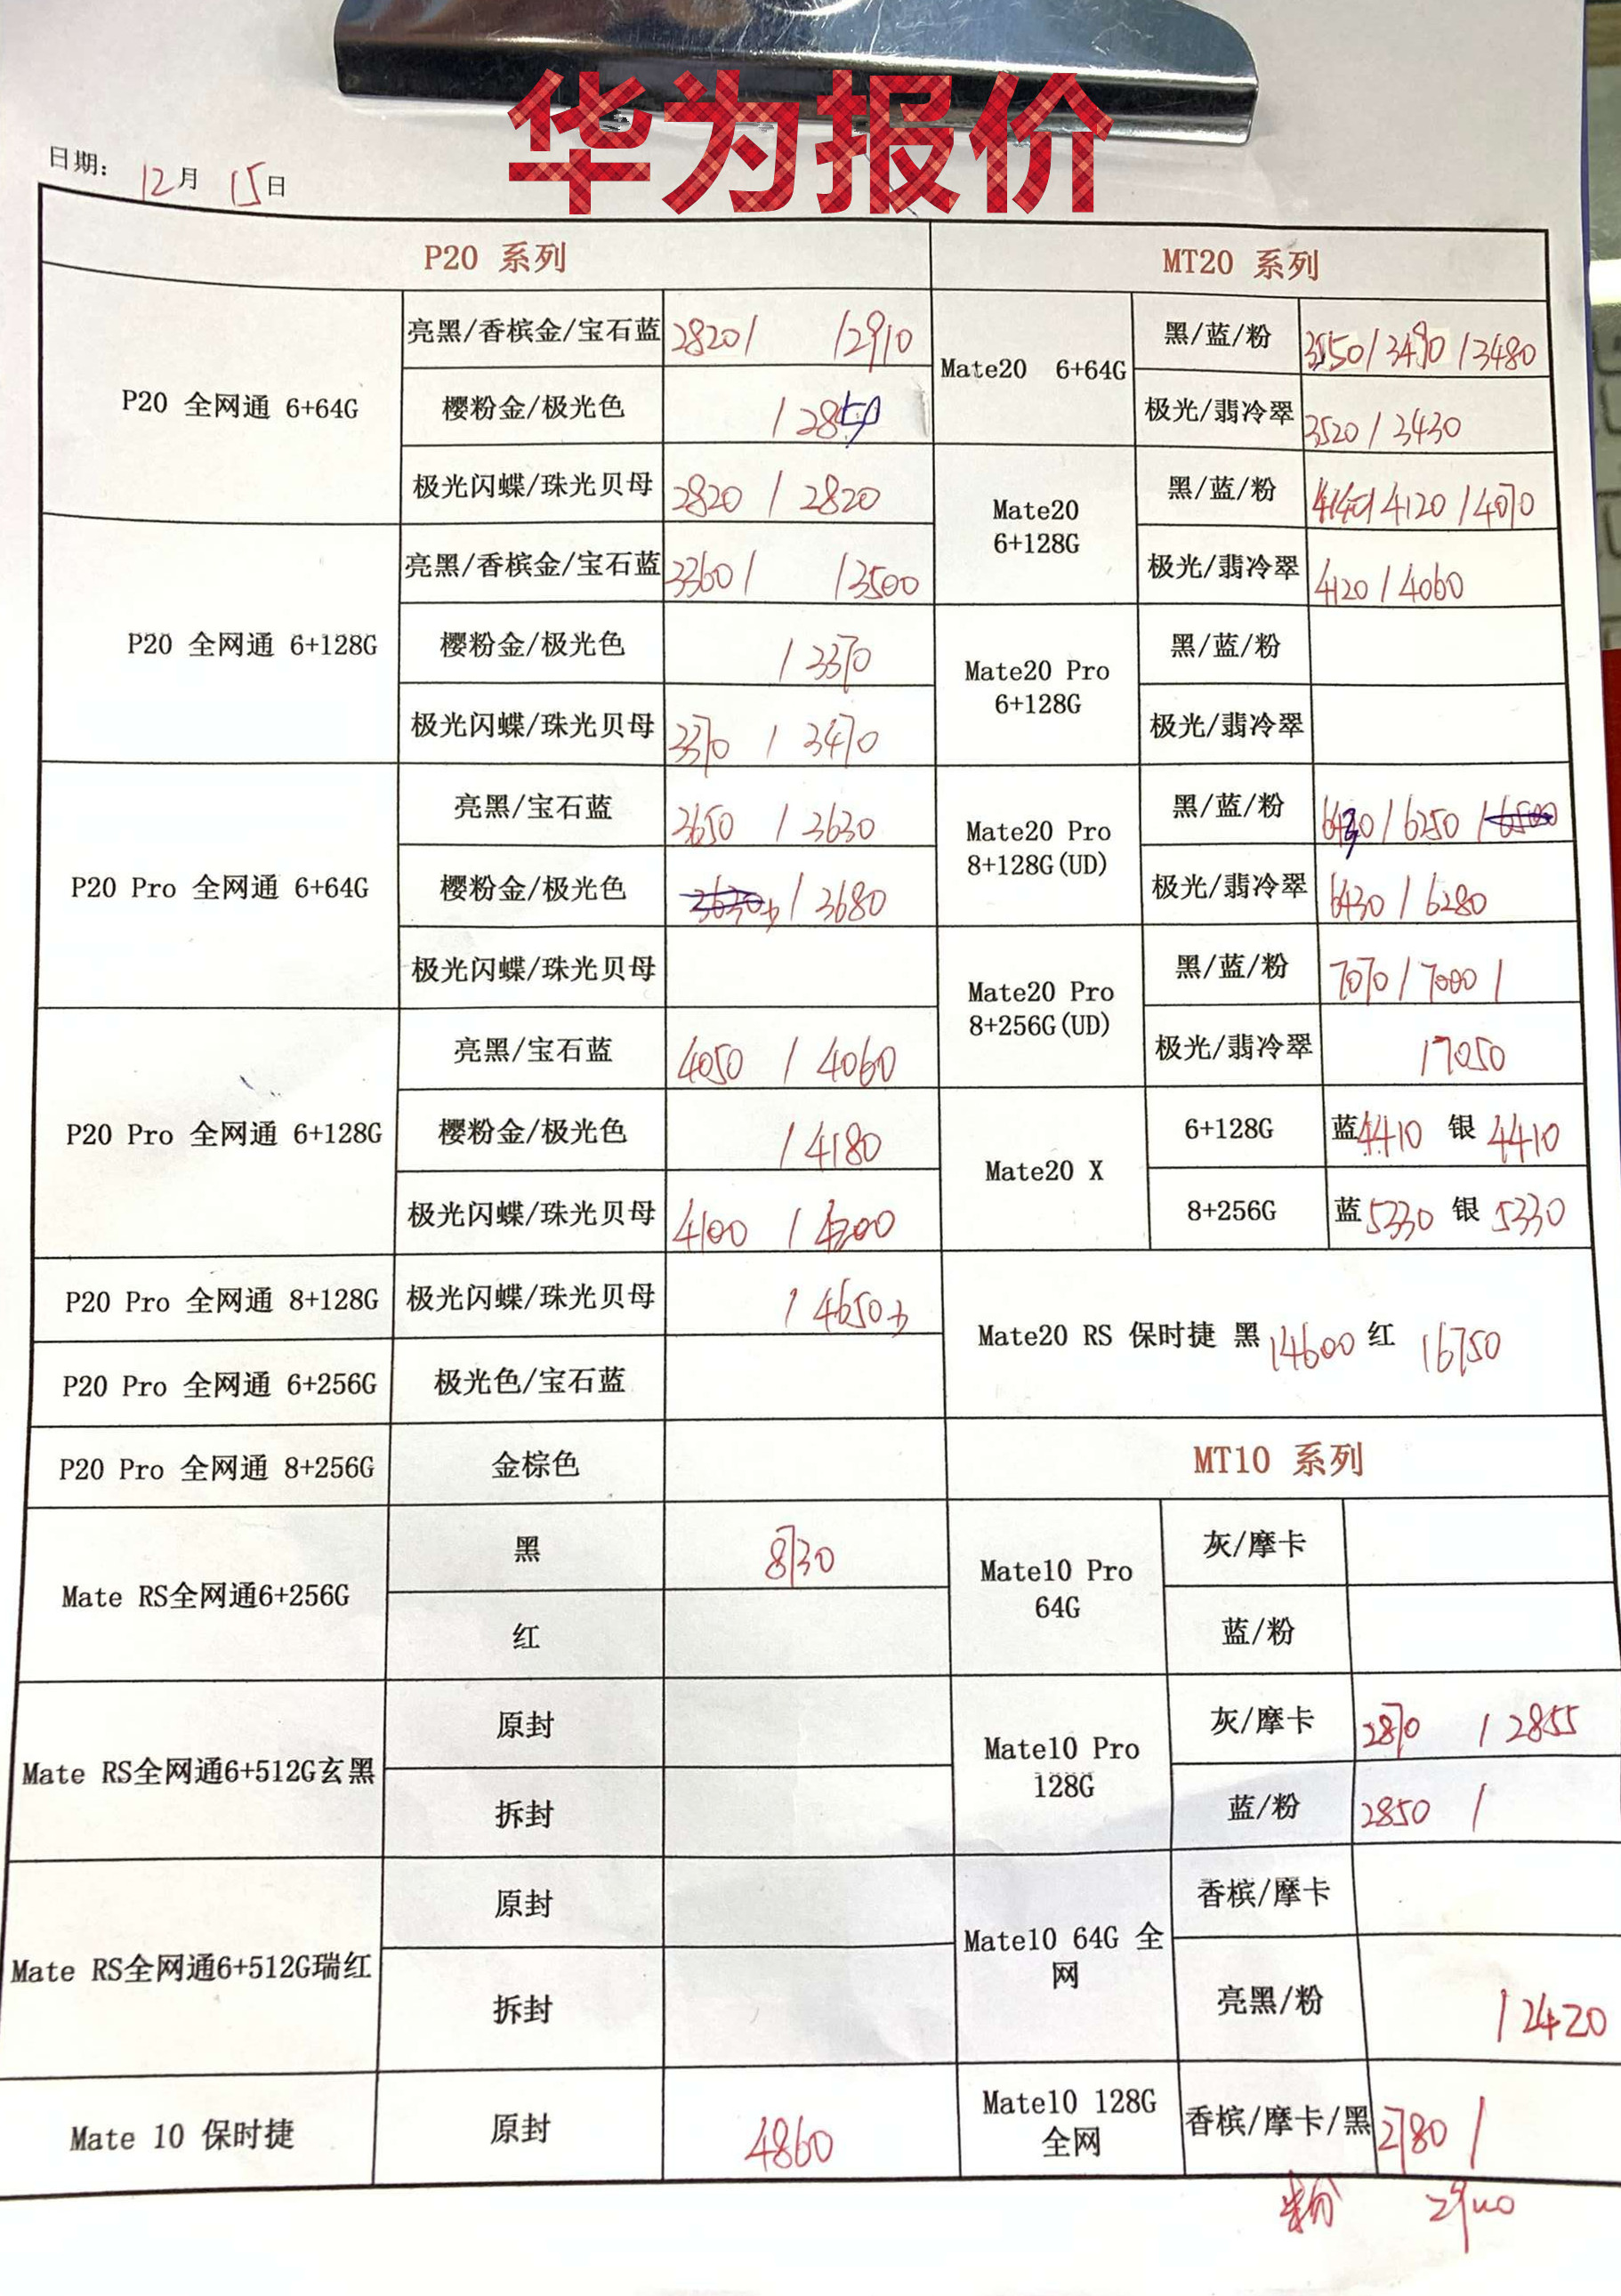 华为报价
日期: 12月 15日
P20 系列
P20 全网通 6+64G
亮黑/香槟金/宝石蓝 2820/ /2910
樱粉金/极光色 /2850
极光闪蝶/珠光贝母 2820 / 2820
P20 全网通 6+128G
亮黑/香槟金/宝石蓝 3360/ /3500
樱粉金/极光色 /3370
极光闪蝶/珠光贝母 3370 / 3470
P20 Pro 全网通 6+64G
亮黑/宝石蓝 3650 / 3630
樱粉金/极光色 / 3680
极光闪蝶/珠光贝母
P20 Pro 全网通 6+128G
亮黑/宝石蓝 4050 / 4060
樱粉金/极光色 / 4180
极光闪蝶/珠光贝母 4100 / 4200
P20 Pro 全网通 8+128G
极光闪蝶/珠光贝母 / 4650
P20 Pro 全网通 6+256G
极光色/宝石蓝
P20 Pro 全网通 8+256G
金棕色
Mate RS全网通6+256G
黑 8130
红
Mate RS全网通6+512G玄黑
原封
拆封
Mate RS全网通6+512G瑞红
原封
拆封
Mate 10 保时捷
原封 4860
MT20 系列
Mate20 6+64G
黑/蓝/粉 /3490 /3480
极光/翡冷翠 3520 / 3430
Mate20
6+128G
黑/蓝/粉 4140/4120 /4070
极光/翡冷翠 4120 / 4060
Mate20 Pro
6+128G
黑/蓝/粉
极光/翡冷翠
Mate20 Pro
8+128G(UD)
黑/蓝/粉 / 6250 / 6500
极光/翡冷翠 6430 / 6280
Mate20 Pro
8+256G(UD)
黑/蓝/粉 7070 / 7000 /
极光/翡冷翠 /7050
Mate20 X
6+128G 蓝4410 银 4410
8+256G 蓝5330 银 5330
Mate20 RS 保时捷 黑 14600 红 16750
MT10 系列
Mate10 Pro
64G
灰/摩卡
蓝/粉
Mate10 Pro
128G
灰/摩卡 2870 / 2855
蓝/粉 2850 /
Mate10 64G 全
网
香槟/摩卡
亮黑/粉 / 2420
Mate10 128G
全网
香槟/摩卡/黑 2780 /
粉 2900